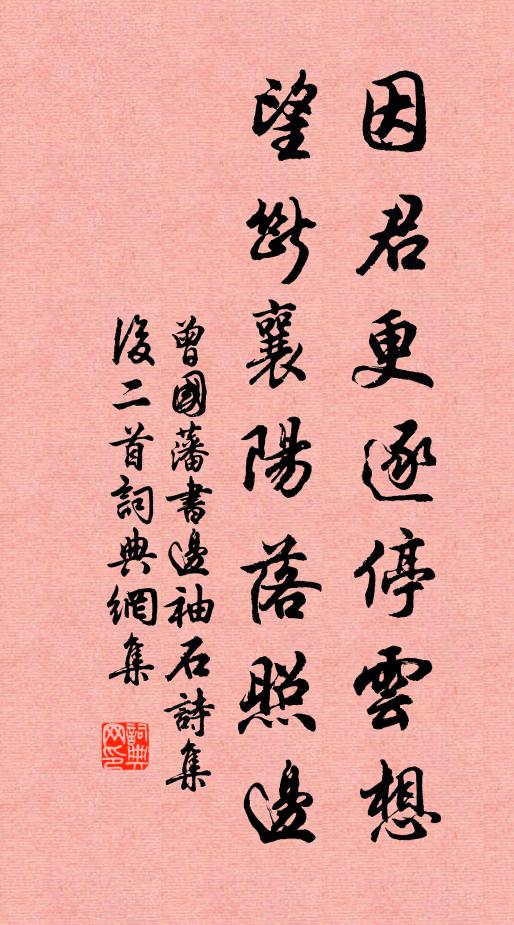 因君更逐停雲想
望斷襄陽落照邊
曾國藩書邊袖石詩集
後二首詞典網集
詞典網印